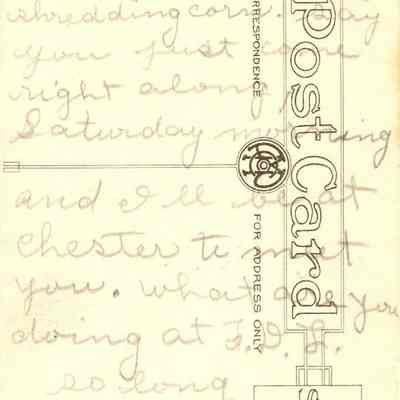 shredding corn. Say
you just come
right along
Saturday morning
and I'll be at
Chester to met
you. What are you
doing at
so long
Post Card
CORRESPONDENCE
FOR ADDRESS ONLY